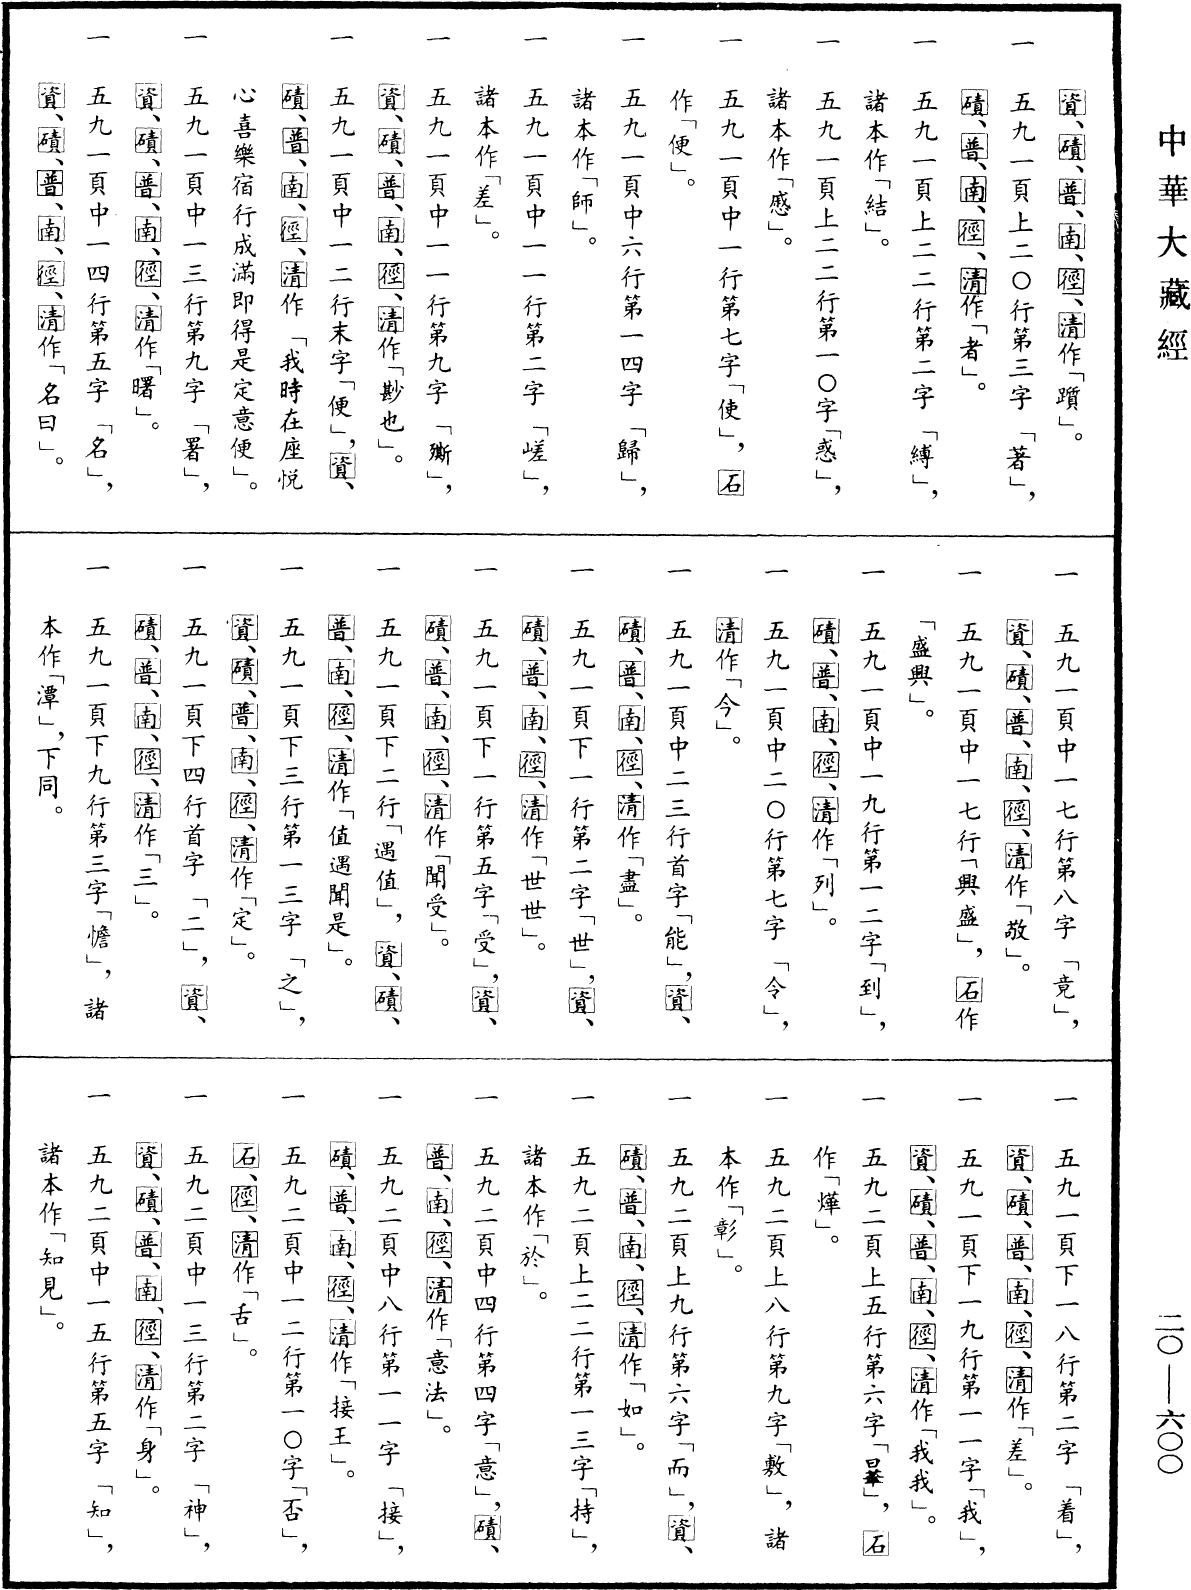 中華大藏經
二〇—六〇〇
資、磧、普、南、徑、清作「躓」。
一 五九一頁上二〇行第三字「著」，
磧、普、南、徑、清作「者」。
一 五九一頁上二二行第二字「縛」，
諸本作「結」。
一 五九一頁上二二行第一〇字「惑」，
諸本作「感」。
一 五九一頁中一行第七字「使」，石
作「便」。
一 五九一頁中六行第一四字「歸」，
諸本作「師」。
一 五九一頁中一一行第二字「嵯」，
諸本作「差」。
一 五九一頁中一一行第九字「㔼」，
資、磧、普、南、徑、清作「尠也」。
一 五九一頁中一二行末字「便」，資、
磧、普、南、徑、清作「我時在座悦
心喜樂宿行成滿即得是定意便」。
一 五九一頁中一三行第九字「署」，
資、磧、普、南、徑、清作「曙」。
一 五九一頁中一四行第五字「名」，
資、磧、普、南、徑、清作「名曰」。
一 五九一頁中一七行第八字「竟」，
資、磧、普、南、徑、清作「敬」。
一 五九一頁中一七行「興盛」，石作
「盛興」。
一 五九一頁中一九行第一二字「到」，
磧、普、南、徑、清作「列」。
一 五九一頁中二〇行第七字「令」，
清作「今」。
一 五九一頁中二三行首字「能」，資、
磧、普、南、徑、清作「盡」。
一 五九一頁下一行第二字「世」，資、
磧、普、南、徑、清作「世世」。
一 五九一頁下一行第五字「受」，資、
磧、普、南、徑、清作「聞受」。
一 五九一頁下二行「遇值」，資、磧、
普、南、徑、清作「值遇聞是」。
一 五九一頁下三行第一三字「之」，
資、磧、普、南、徑、清作「定」。
一 五九一頁下四行首字「二」，資、
磧、普、南、徑、清作「三」。
一 五九一頁下九行第三字「憺」，諸
本作「潭」，下同。
一 五九一頁下一八行第二字「着」，
資、磧、普、南、徑、清作「差」。
一 五九一頁下一九行第一一字「我」，
資、磧、普、南、徑、清作「我我」。
一 五九二頁上五行第六字「曅」，石
作「燁」。
一 五九二頁上八行第九字「敷」，諸
本作「彰」。
一 五九二頁上九行第六字「而」，資、
磧、普、南、徑、清作「如」。
一 五九二頁上二二行第一三字「持」，
諸本作「於」。
一 五九二頁中四行第四字「意」，磧、
普、南、徑、清作「意法」。
一 五九二頁中八行第一一字「接」，
磧、普、南、徑、清作「接王」。
一 五九二頁中一二行第一〇字「否」，
石、徑、清作「舌」。
一 五九二頁中一三行第二字「神」，
資、磧、普、南、徑、清作「身」。
一 五九二頁中一五行第五字「知」，
諸本作「知見」。